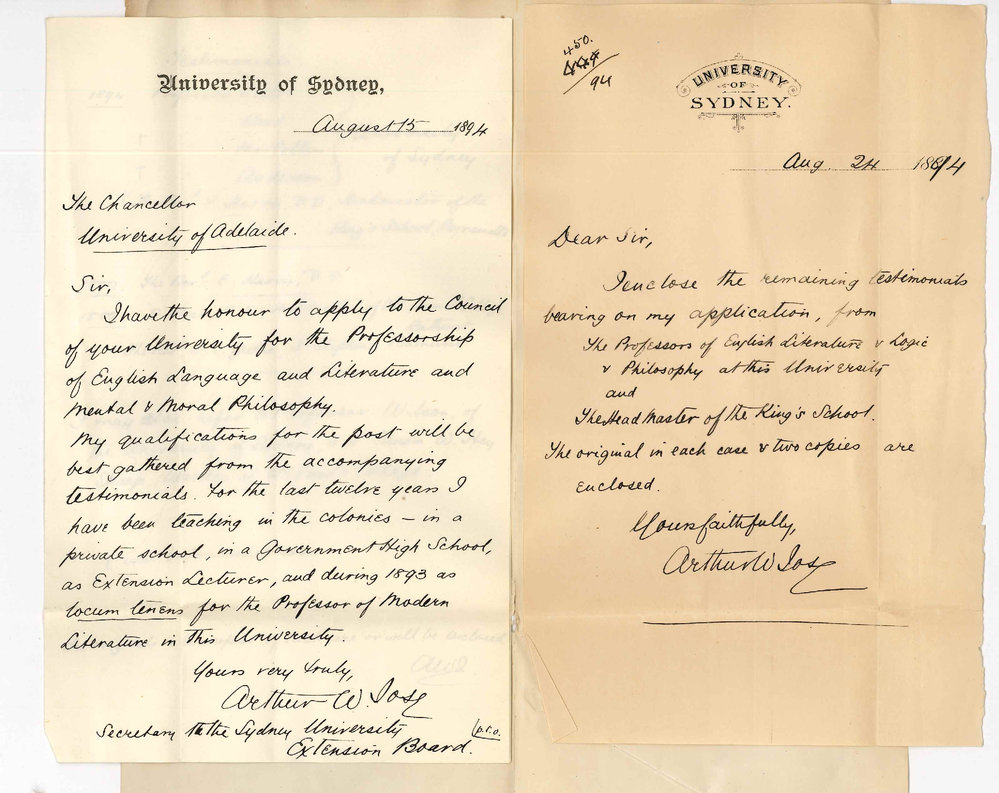 University of Sydney,
August 15 1894
The Chancellor
University of Adelaide.
Sir,
I have the honour to apply to the Council
of your University for the Professorship
of English Language and Literature and
Mental & Moral Philosophy.
My qualifications for the post will be
best gathered from the accompanying
testimonials. For the last twelve years I
have been teaching in the colonies – in a
private school, in a Government High School,
as Extension Lecturer, and during 1893 as
locum tenens for the Professor of Modern
Literature in this University.
Yours very truly,
Arthur W. Jose
Secretary to the Sydney University
Extension Board.
(p.t.o.
450.
94
UNIVERSITY
OF
SYDNEY.
Aug. 24 1894
Dear Sir,
I enclose the remaining testimonials
bearing on my application, from
The Professors of English Literature & Logic
& Philosophy at this University
and
The Head Master of the King's School.
The original in each case & two copies are
enclosed.
Yours faithfully,
Arthur W Jose